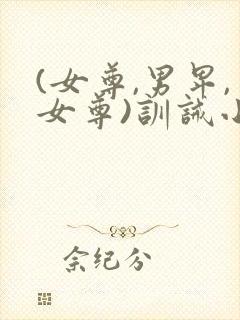 (女尊,男卑,
女尊)訓誡小
余紀分